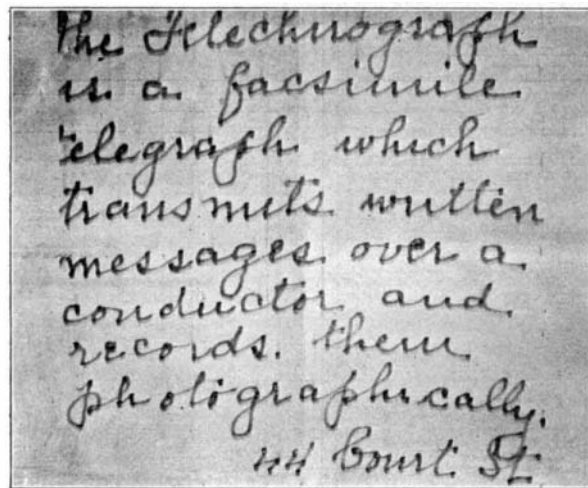 the Telechirograph
is a facsimile
telegraph which
transmits written
messages over a
conductor and
records. them
photographically.
44 Court St